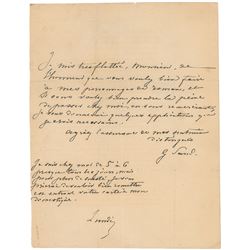 Je suis très flattée, Monsieur, de
l'honneur que vous voulez bien faire
à mes personnages de roman, et
si vous voulez bien prendre la peine
de passer chez moi, en vous remerciant,
je vous donnerai quelques explications que
je crois nécessaires.
Agréez l'assurance de mes sentimens
distingués
G Sand.
Je suis chez moi de 5 à 6
presque tous les jours, mais
je vous
prierai de vouloir bien remettre
en entrant votre carte à mon
domestique.
Lundi